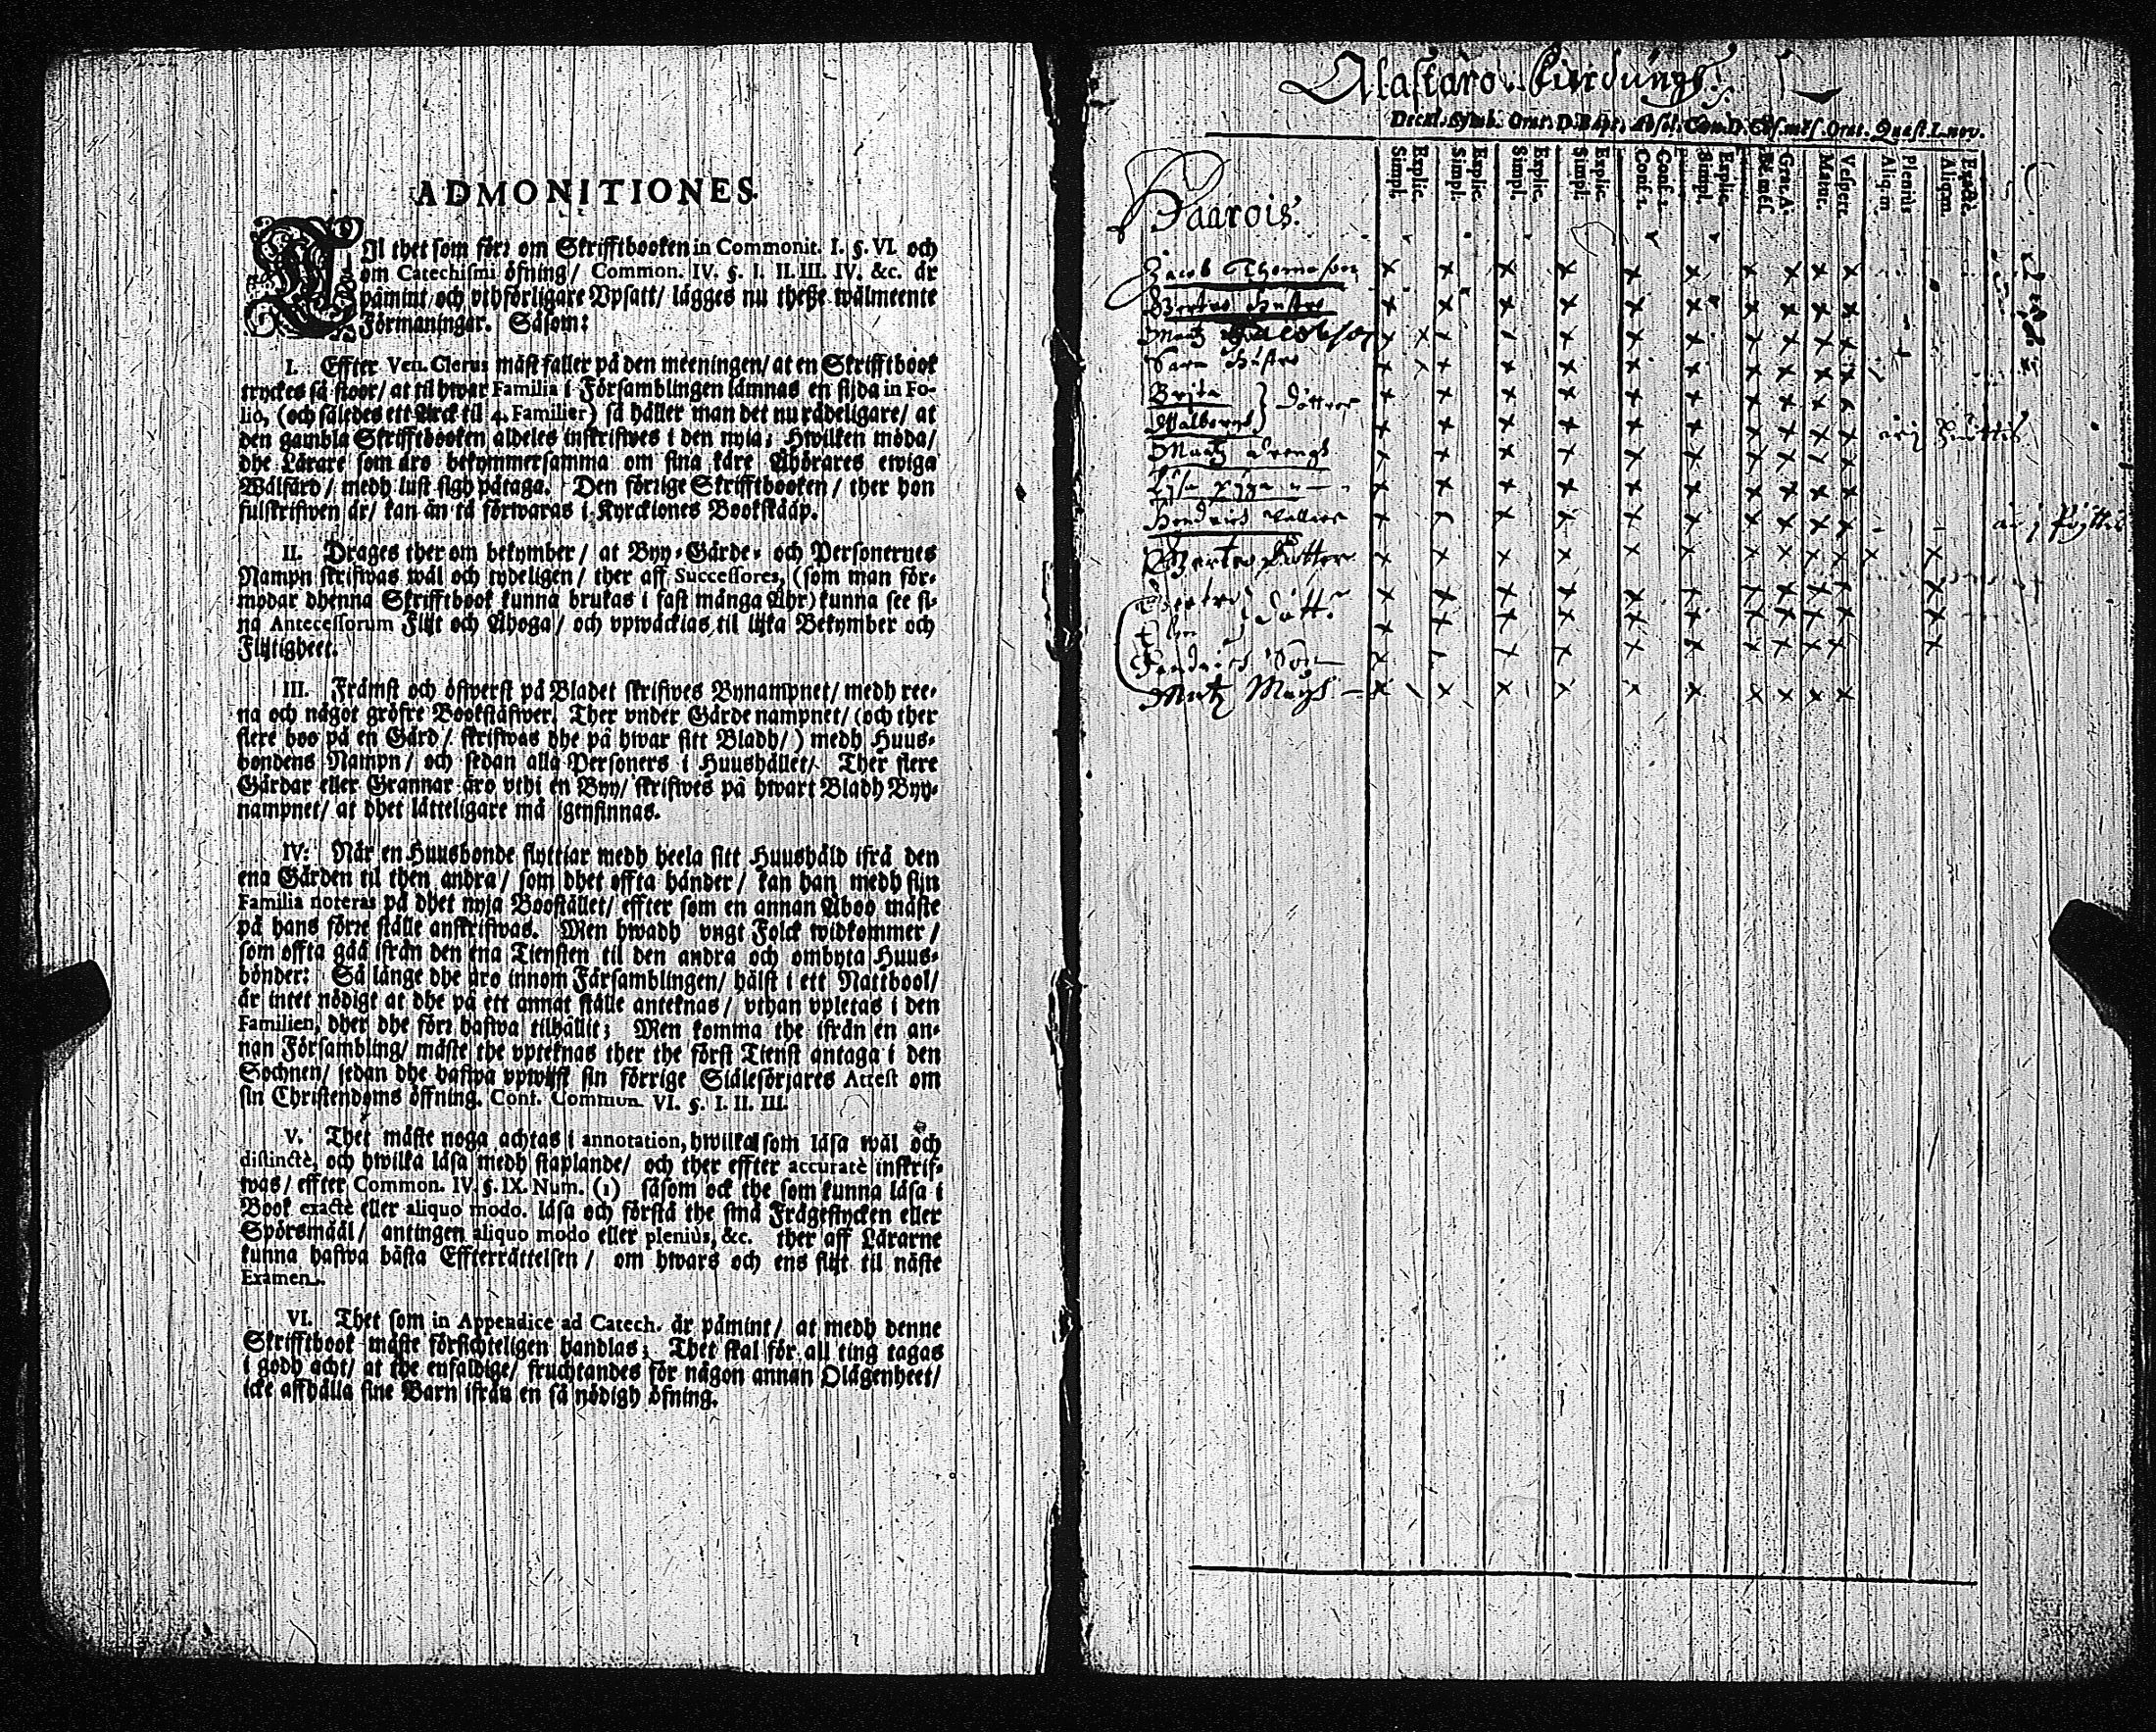 ADMONITIONES
TIl thet som förr om Skrifftbooken in Commonit. I. §. VI. och
om Catechismi öfning/ Common. IV. §. I. II. III. IV. &c. är
påmint/ och vthförligare Vpsatt/ lägges nu theße wälmeente
Förmaningar. Såsom:
I. Effter Ven. Clerus mäst faller på den meeningen/ at en Skrifftbook
tryckes så stoor/ at til hwar Familia i Församblingen lämnas en sijda in Fo-
lio, (och således ett Arck til 4. Familier) så håller man det nu rådeligare/ at
den gambla Skrifftbooken aldeles inskrifwes i den nyia; Hwilken möda/
dhe Lärare som äro bekymmersamma om sina käre Åhörares ewiga
Wälfärd/ medh lust sigh påtaga. Den förrige Skrifftbooken/ ther hon
fulskrifwen är/ kan än tå förwaras i Kyrckiones Bookskååp.
II. Drages ther om bekymber/ at Byy-Gårde- och Personernes
Nampn skrifwas wäl och tydeligen/ ther aff Successores, (som man för-
modar dhenna Skrifftbook kunna brukas i fast många Åhr) kunna see si-
na Antecessorum Flijt och Åhoga/ och vpwäcklas til lijka Bekymber och
Flijtigheet.
III. Främst och öfwerst på Bladet skrifwes Bynampnet/ medh ree-
na och något gröfre Bookstäfwer. Ther vnder Gårde nampnet/ (och ther
flere boo på en Gård/ skrifwas dhe på hwar sitt Bladh/) medh Huus-
bondens Nampn/ och sedan alla Personers i Huushållet/. Ther flere
Gårdar eller Grannar äro vthi en Byy/ skrifwes på hwart Bladh Byy-
nampnet/ at dhet lätteligare må igenfinnas.
IV. När en Huusbonde flyttiar medh heela sitt Huushåld ifrå den
ena Gården til then andra/ som dhet offta händer/ kan han medh sijn
Familia noteras på dhet nyia Boostället/ effter som en annan Åboo måste
på hans förre ställe anskrifwas. Men hwadh vngt Folck widkommer/
som offta gåå ifrån den ena Tiensten til den andra och ombyta Huus-
bönder: Så länge dhe äro innom Församblingen/ hälst i ett Nattbool/
är intet nödigt at dhe på ett annat ställe anteknas/ vthan vpletas i den
Familien, dher dhe förr hafwa tilhållit; Men komma the ifrån en an-
nan Försambling/ måste the vpteknas ther the först Tienst antaga i den
Sochnen/ sedan dhe hafwa vpwijst sin förrige Siälesörjares Attest om
sin Christendoms öffning. Conf. Commun. VI. §. I. II. III.
V. Thet måste noga achtas i annotation, hwilka som läsa wäl och
distinctè, och hwilka läsa medh staplande/ och ther effter accuratè inskrif-
was/ effter Common. IV. §. IX. Num. (1) såsom ock the som kunna läsa i
Book exactè eller aliquo modo. läsa och förstå the sina Frågestycken eller
Spörsmåål/ antingen aliquo modo eller plenius, &c. ther aff Lärarne
kunna hafwa bästa Effterrättelsen/ om hwars och ens flijt til näste
Examen.
VI. Thet som in Appendice ad Catech. är påmint/ at medh denne
Skrifftbook måste försichteligen handlas; Thet skal för all ting tagas
i godh acht/ at the enfaldige/ fruchtandes för någon annan Olägenheet/
icke affhålla sine Barn ifrån en så nödigh öfning.
Alastaro fierdungs
Decal. Symb. Orat. D. Bapt. Absol. Cœn. D. Orat. Quæst. L. nov.
Simpl. Explic. Simpl. Explic. Simpl. Explic. Simpl. Explic. Conf. 1. Conf. 2. Simpl. Explic. Grat. A. Matut. Vespert. Aliq. m. Plenius Aliq. m. Exactè.
Paarois.
Jacob Thomeson
Bertas hustro
Matz Jacobson
Sara hustro
Brita
Walborg } dottror
Matz drengh
Lisa piga
Hendrich
dott.
Hendrich Son
Matz Matzs